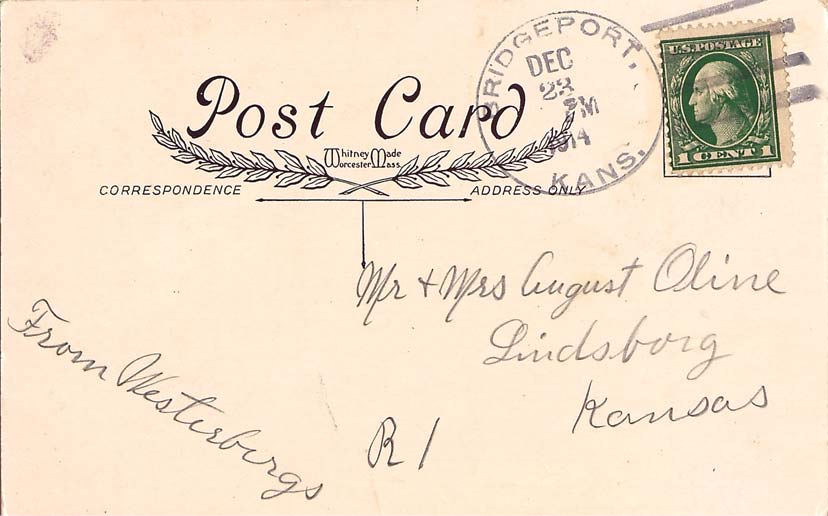 BRIDGEPORT,
DEC
23
PM
1914
KANS.
U.S. POSTAGE
1 CENT 1
Post Card
Whitney Made
Worcester Mass.
CORRESPONDENCE
ADDRESS ONLY
Mr + Mrs August Oline
Lindsborg
Kansas
R 1
From Westerbergs